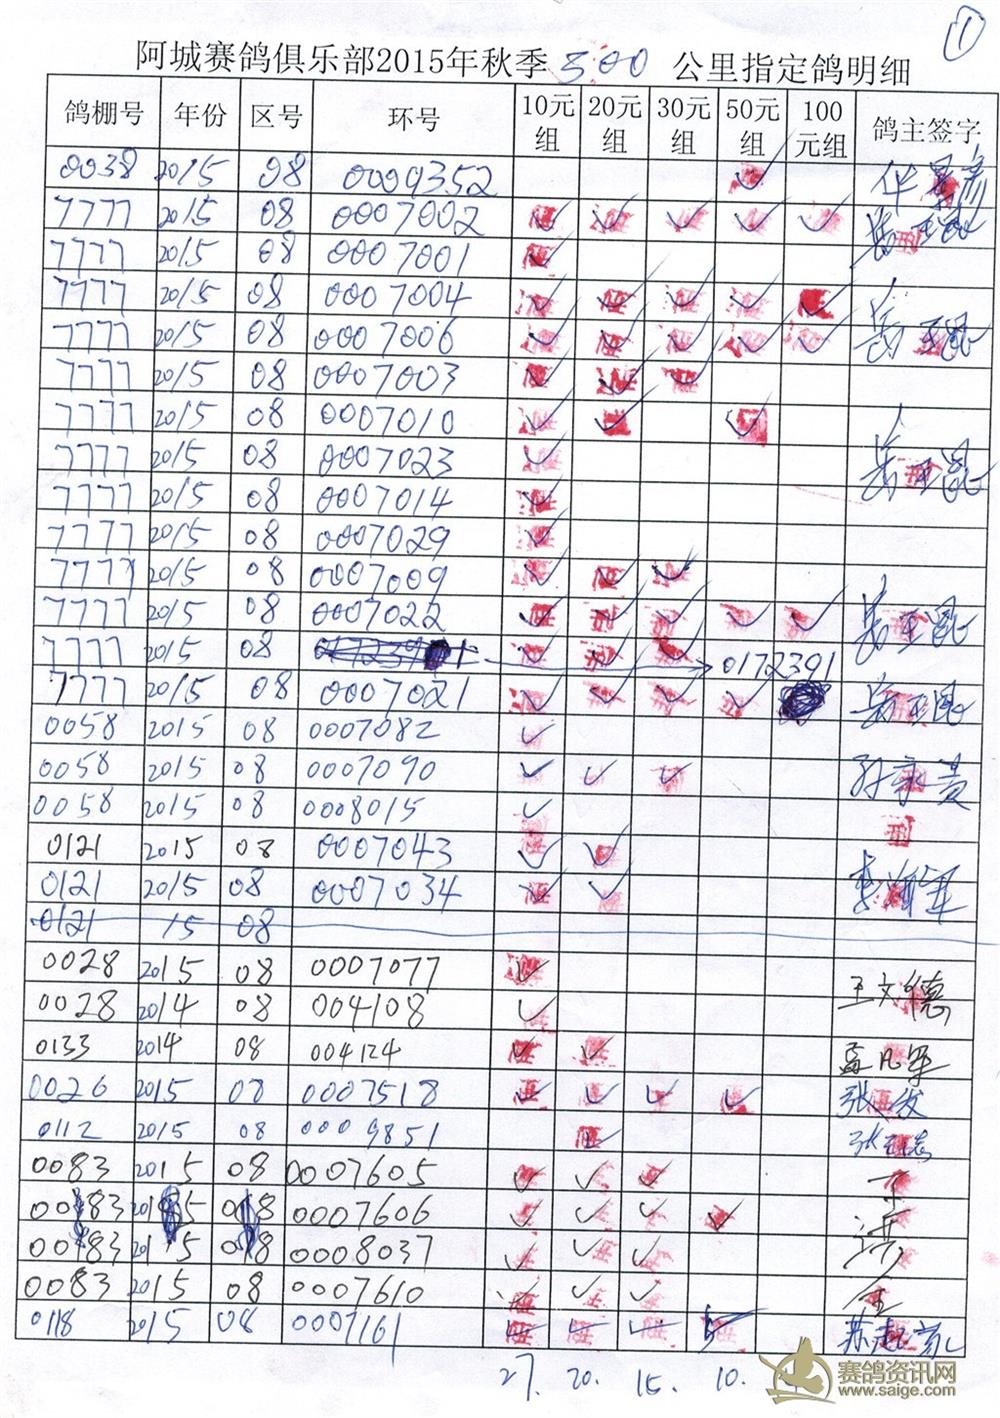 ①
阿城赛鸽俱乐部2015年秋季 500 公里指定鸽明细
鸽棚号 年份 区号 环号 10元组 20元组 30元组 50元组 100元组 鸽主签字
0038 2015 08 0009352 ✓
7777 2015 08 0007002 ✓ ✓ ✓ ✓ ✓
7777 2015 08 0007001 ✓
7777 2015 08 0007004 ✓ ✓ ✓ ✓ ✓
7777 2015 08 0007006 ✓ ✓ ✓ ✓ ✓
7777 2015 08 0007003 ✓ ✓ ✓
7777 2015 08 0007010 ✓ ✓ ✓
7777 2015 08 0007023 ✓
7777 2015 08 0007014 ✓
7777 2015 08 0007029 ✓
7777 2015 08 0007009 ✓ ✓ ✓
7777 2015 08 0007022 ✓ ✓ ✓ ✓ ✓
7777 2015 08 ✓ ✓ ✓ 0172391
7777 2015 08 0007021 ✓ ✓ ✓ ✓
0058 2015 08 0007082 ✓
0058 2015 08 0007090 ✓ ✓ ✓
0058 2015 08 0008015 ✓
0121 2015 08 0007043 ✓ ✓
0121 2015 08 0007034 ✓ ✓
0121 15 08
0028 2015 08 0007077 ✓ 王文德
0028 2014 08 004108 ✓
0133 2014 08 004124 ✓ ✓
0026 2015 08 0007518 ✓ ✓ ✓ ✓
0112 2015 08 0009851 ✓
0083 2015 08 0007605 ✓ ✓ ✓
0083 2015 08 0007606 ✓ ✓ ✓ ✓
0083 2015 08 0008037 ✓ ✓ ✓
0083 2015 08 0007610 ✓ ✓ ✓
0118 2015 08 0007161 ✓ ✓ ✓ ✓
27. 20. 15. 10.
赛鸽资讯网
www.saige.com